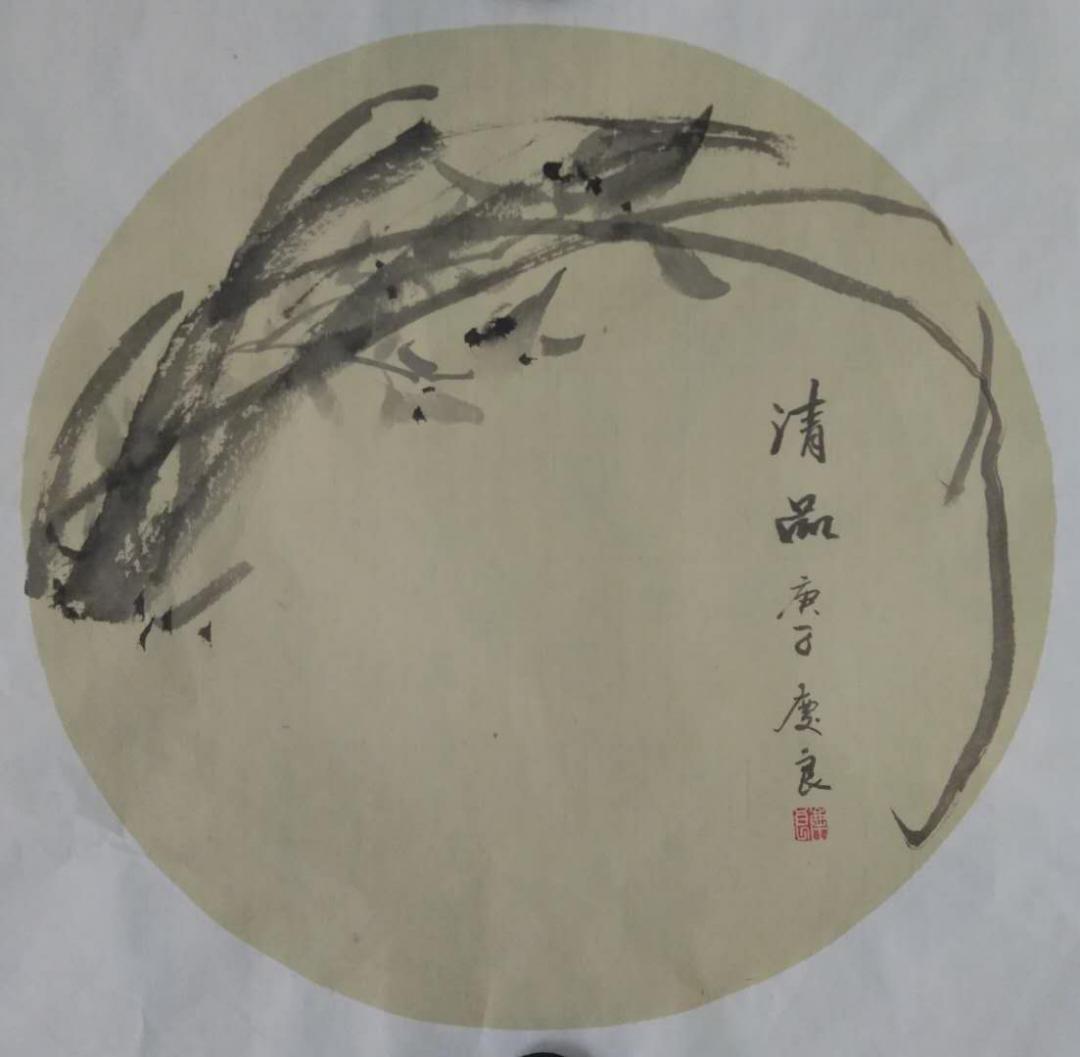 清品庚子慶良